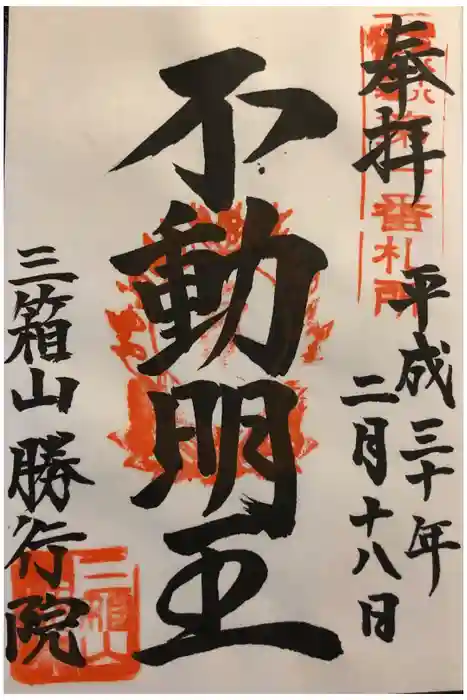 奉拝
第一番札所
平成三十年
二月十八日
不動明王
三箱山勝行院